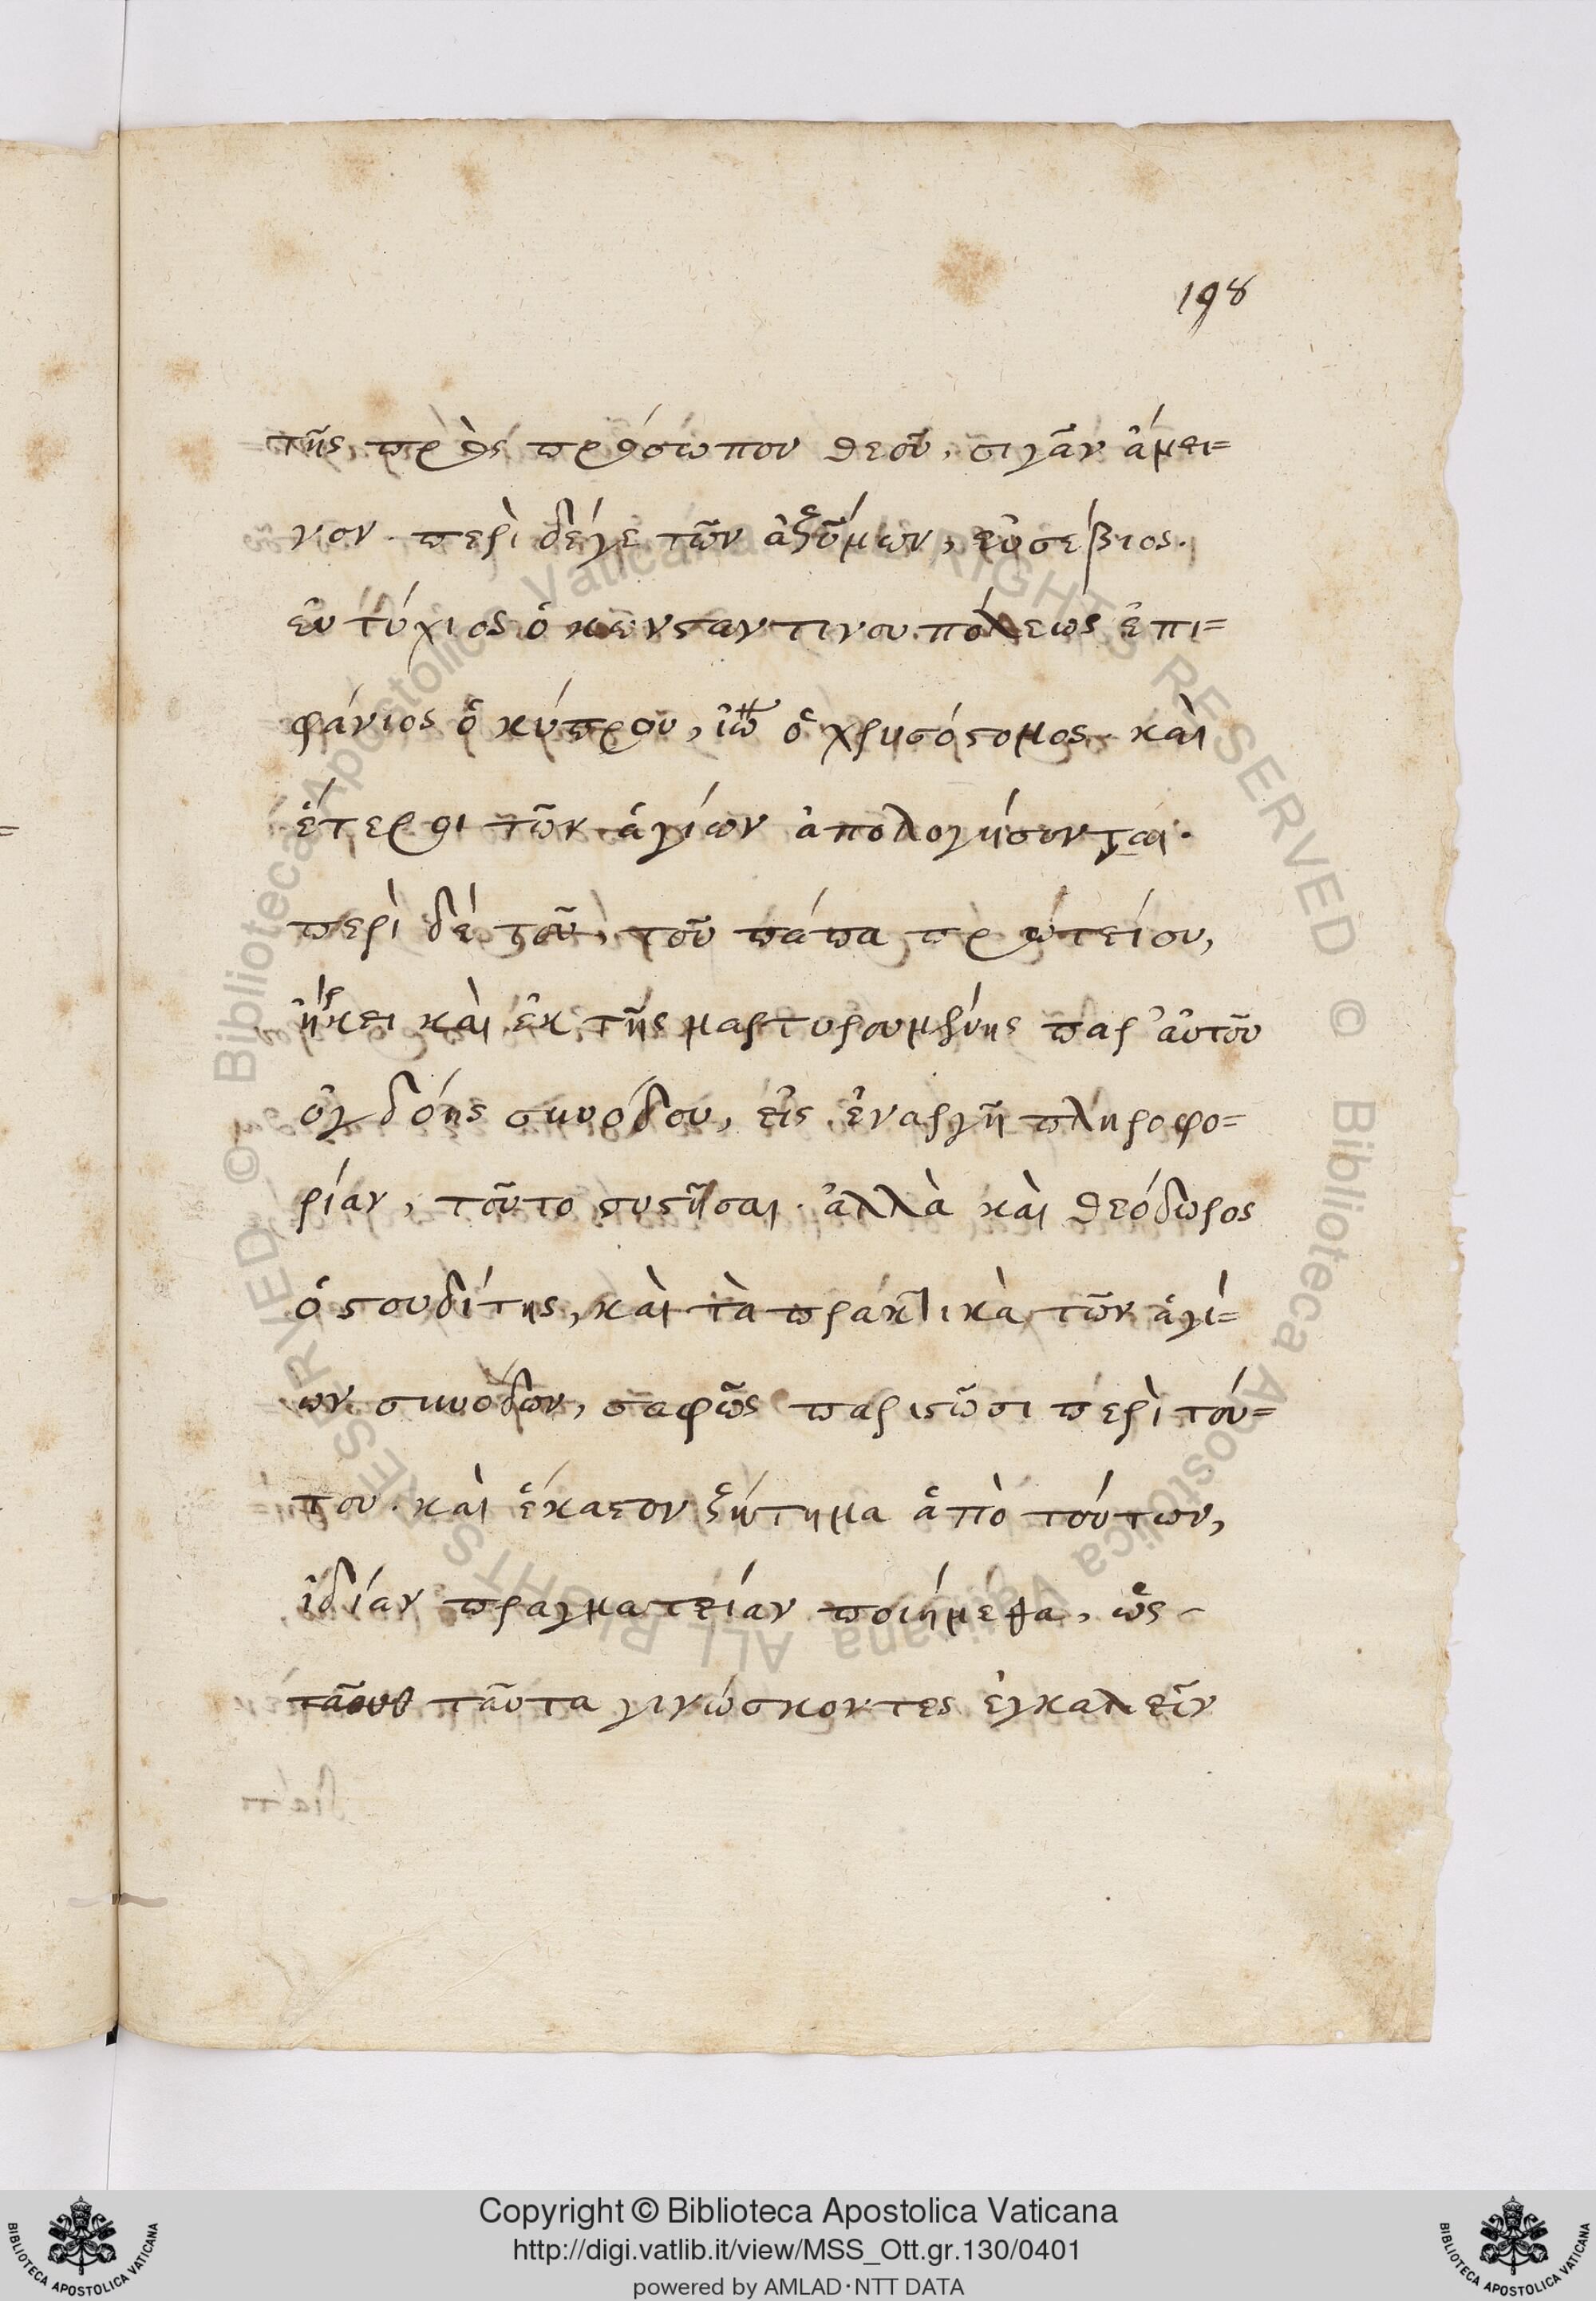 198
τῆς πρὸς πρόσωπου θεοῦ, σιγᾶν ἄμει=
νον. περὶ δέγε τῶν ἀζύμων, εὐσέβιος.
εὐτύχιος ὁ κωνσταντινουπόλεως ἐπι=
φάνιος ὁ κύπρου, ἰω ὁ χρυσόστομος. καὶ
ἕτεροι τῶν ἁγίων ἀπολογήσονται.
περὶ δέ τοῦ, τοῦ πάπα πρωτείου,
ἤρκει καὶ ἐκ τῆς μαρτυρουμένης παρ' αὐτοῦ
ὀγδόης συνόδου, εἰς ἐναργῆ πληροφο=
ρίαν, τοῦτο συστῆσαι. ἀλλὰ καὶ θεόδωρος
ὁ στουδίτης, καὶ τὰ πρακτικὰ τῶν ἁγί=
ων συνόδων, σαφῶς παριστῶσι περὶ τού=
του. καὶ ἕκαστον ζήτημα ἀπὸ τούτων,
ἰδίαν πραγματείαν ποιήμεθα, ὡς
ταῦτα γινώσκοντες ἐγκαλεῖν
© Biblioteca Apostolica Vaticana ALL RIGHTS RESERVED © Biblioteca Apostolica Vaticana ALL RIGHTS RESERVED
Copyright © Biblioteca Apostolica Vaticana
http://digi.vatlib.it/view/MSS_Ott.gr.130/0401
powered by AMLAD·NTT DATA
BIBLIOTECA APOSTOLICA VATICANA
BIBLIOTECA APOSTOLICA VATICANA